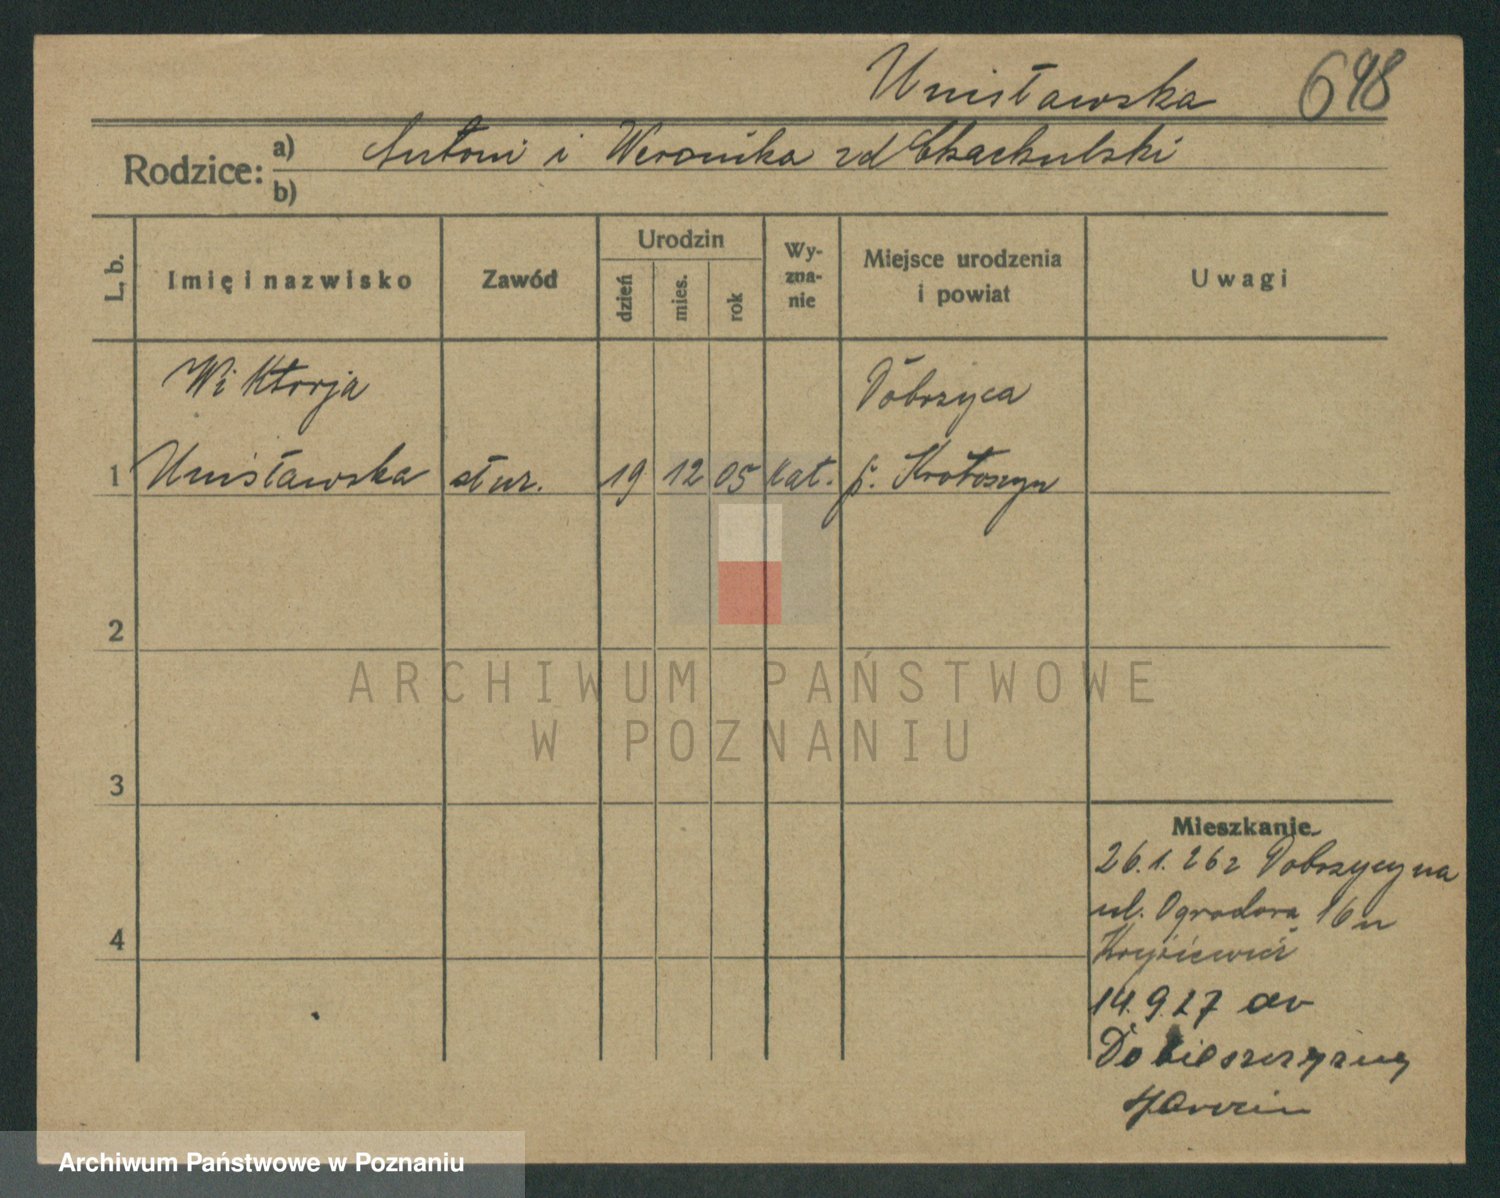 Unisławska 698
Rodzice: a) Antoni i Weronika zd
b)
L. b.
Imię i nazwisko
Zawód
Urodzin
dzień
mies.
rok
Wy-
zna-
nie
Miejsce urodzenia
i powiat
Uwagi
Wiktorja
Dobrzyca
1 Unisławska służ. 19 12 05 kat. p. Krotoszyn
2
ARCHIWUM PAŃSTWOWE
W POZNANIU
3
Mieszkanie
26.1.26 z Dobrzycy na
ul. Ogrodova 16 u
4
14.9.27 do
Jarocin
Archiwum Państwowe w Poznaniu